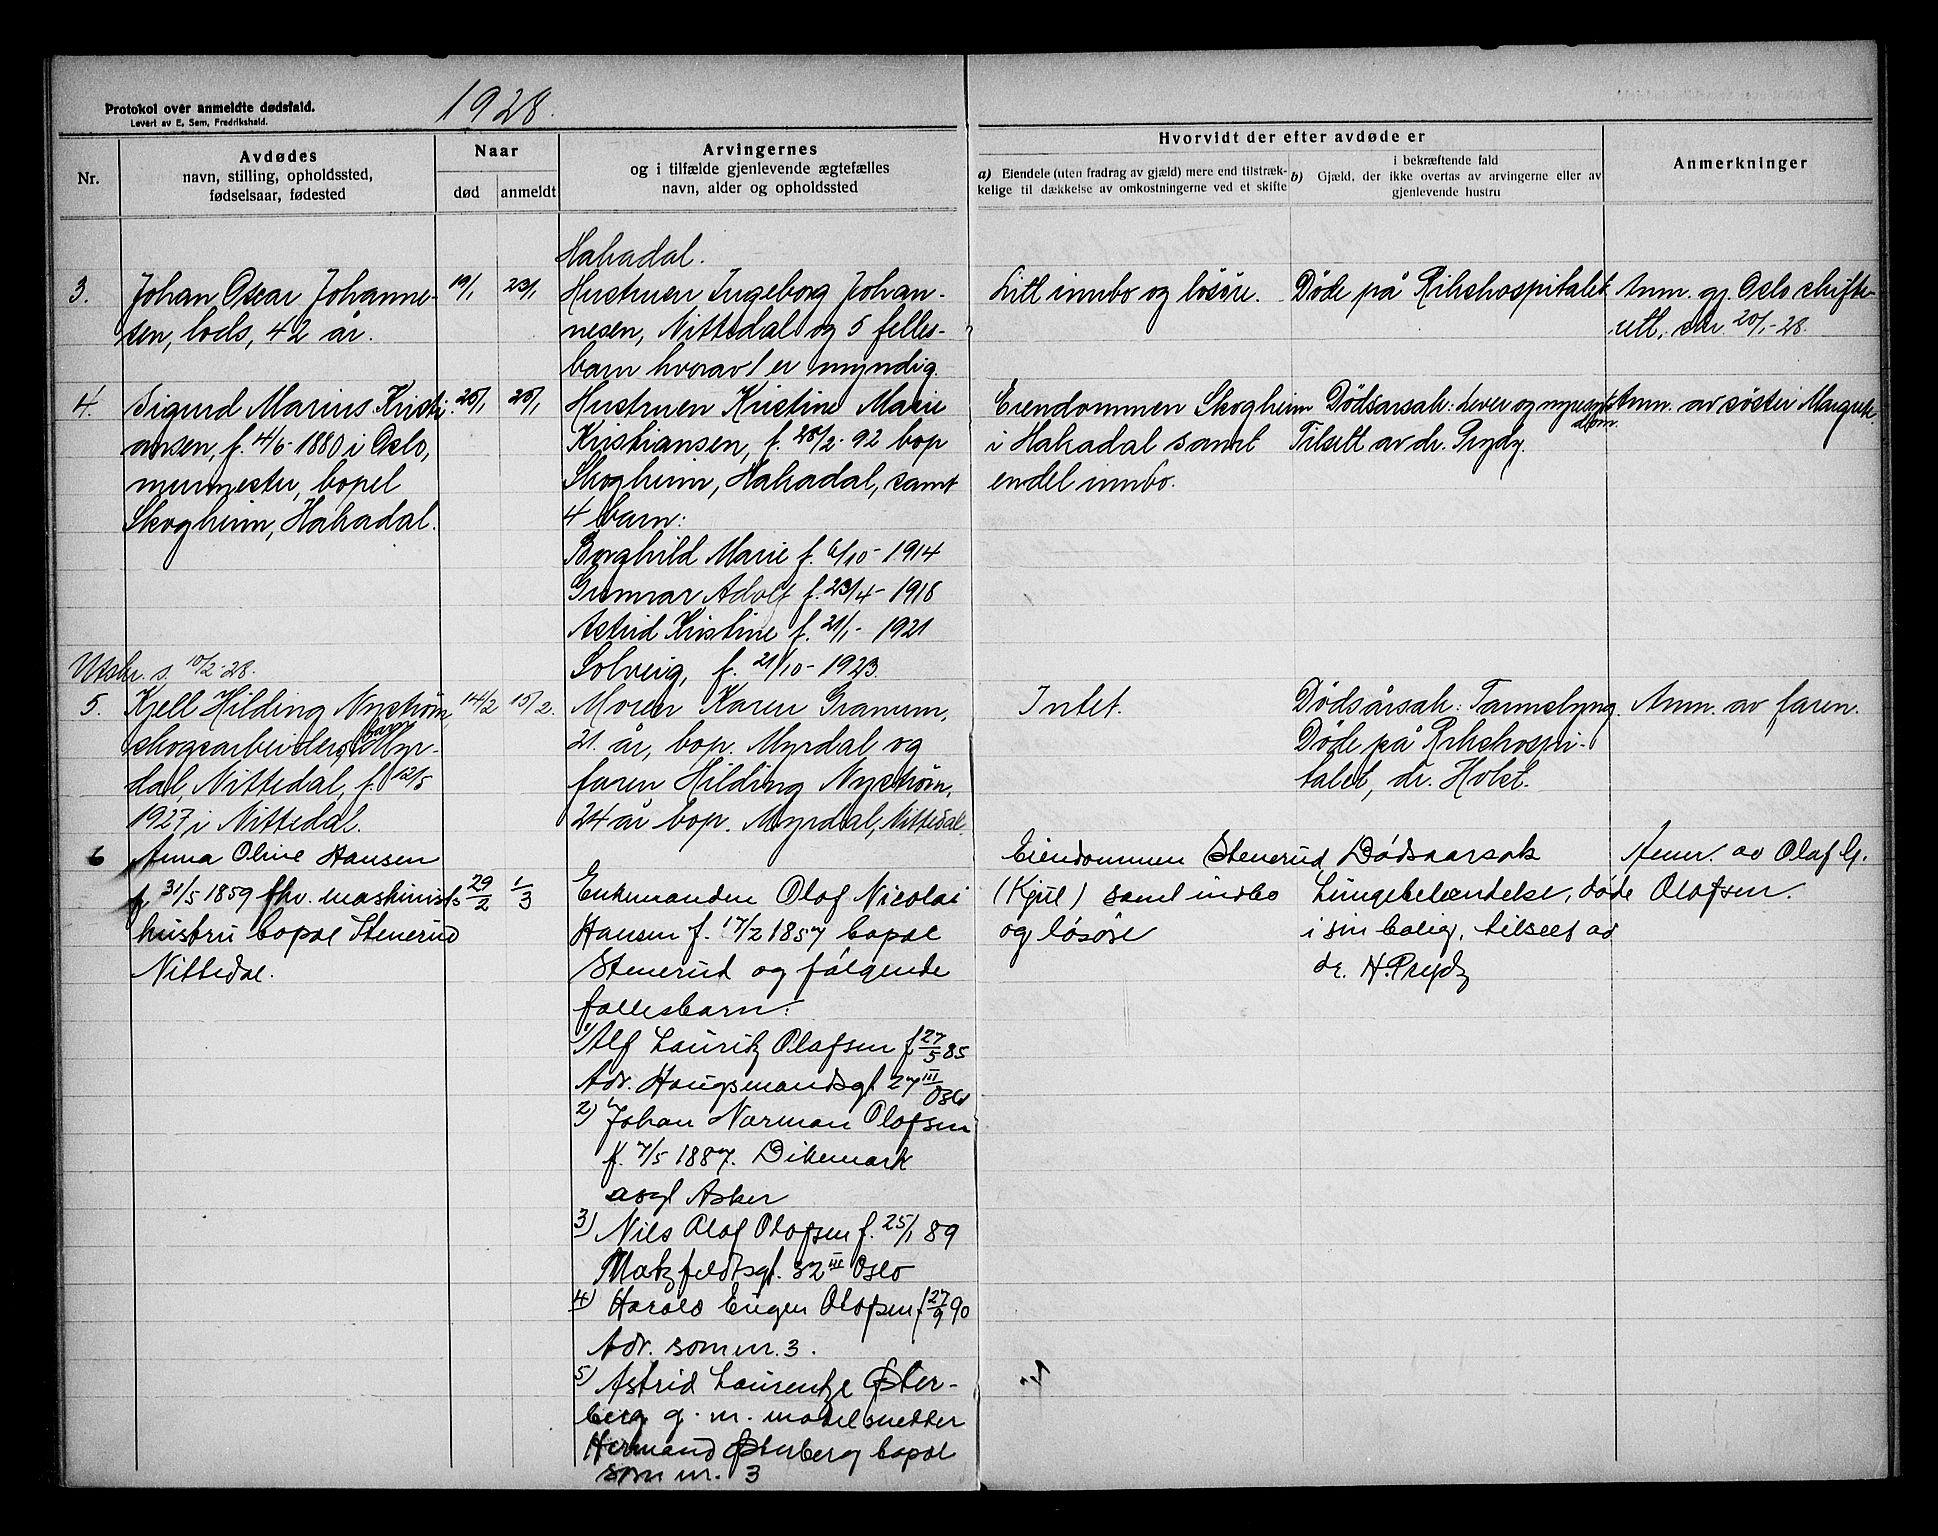 Protokol over anmeldte dødsfald.
Levert av E. Sem, Fredrikshald.
1928.
Nr.
Avdødes
navn, stilling, opholdssted,
fødselsaar, fødested
Naar
død
anmeldt
Arvingernes
og i tilfælde gjenlevende ægtefælles
navn, alder og opholdssted
Hvorvidt der efter avdøde er
a) Eiendele (uten fradrag av gjæld) mere end tilstræk-
kelige til dækkelse av omkostningerne ved et skifte
i bekræftende fald
b) Gjæld, der ikke overtas av arvingerne eller av
gjenlevende hustru
Anmerkninger
Hakadal.
3.
Johan Oscar Johanne-
sen, lods, 42 år.
19/1
23/1
Hustruen Ingeborg Johan-
nesen, Nittedal og 5 felles-
barn hvorav 1 er myndig.
Litt innbo og løsøre.
Døde på Rikshospitalet
Anm. gj. Oslo skifte-
rett, skr. 20/1-28.
4.
Sigurd Marius Kristi-
ansen, f. 4/6-1880 i Oslo,
murmester, bopel
Skogheim, Hakadal.
25/1
25/1
Hustruen Kristine Marie
Kristiansen, f. 25/2-92 bop
Skogheim, Hakadal, samt
4 barn:
Borghild Marie f. 6/10-1914
Gunnar Adolf f. 23/4-1918
Astrid Kristine f. 21/1-1921
Solveig, f. 21/10-1923
Eiendommen Skogheim
i Hakadal samt
endel innbo.
Dødsårsak: Lever og nyresyk-
dom.
Tilsett av dr. Prydz.
Anm. av søster Margrete.
Utskr. s. 10/2-28.
5.
Kjell Hilding Nyström
skogsarbeiders barn Myr-
dal, Nittedal, f. 12/5
1927 i Nittedal.
14/2
15/2.
Moren Karen Granum,
21 år, bop. Myrdal og
faren Hilding Nyström,
24 år bop. Myrdal, Nittedal.
Intet.
Dødsårsak:
Døde på Rikshospi-
talet, dr. Holst.
Anm. av faren.
6
Anna Oline Hansen
f 31/5 1859 fhv. maskinists
hustru bopel Stenerud
Nittedal.
29/2
1/3
Enkemanden Olaf Nicolai
Hansen f. 17/2 1857 bopel
Stenerud og følgende
fellesbarn:
1) Alf Lauritz Olafsen f 27/5 85
Adr. Haugsmandsgt 27 III
Oslo
2) Johan Norman Olafsen
f. 7/5 1887. Dikemark
asyl Asker
3) Nils Olaf Olafsen f. 25/1 89
Motzfeldtsgt. 32 III Oslo
4) Harald Eugen Olafsen f 27/9 90
Adr. som nr. 3.
5) Astrid Laurentze Øster-
berg g. m. modelsnekker
Hermand Østerberg bopel
som nr. 3
Eiendommen Stenerud
(Kjul) samt indbo
og løsøre
Dødsaarsak
Lungebetændelse, døde
i sin bolig, tilseet av
dr. H. Prydz
Anm. av Olaf G.
Olafsen.